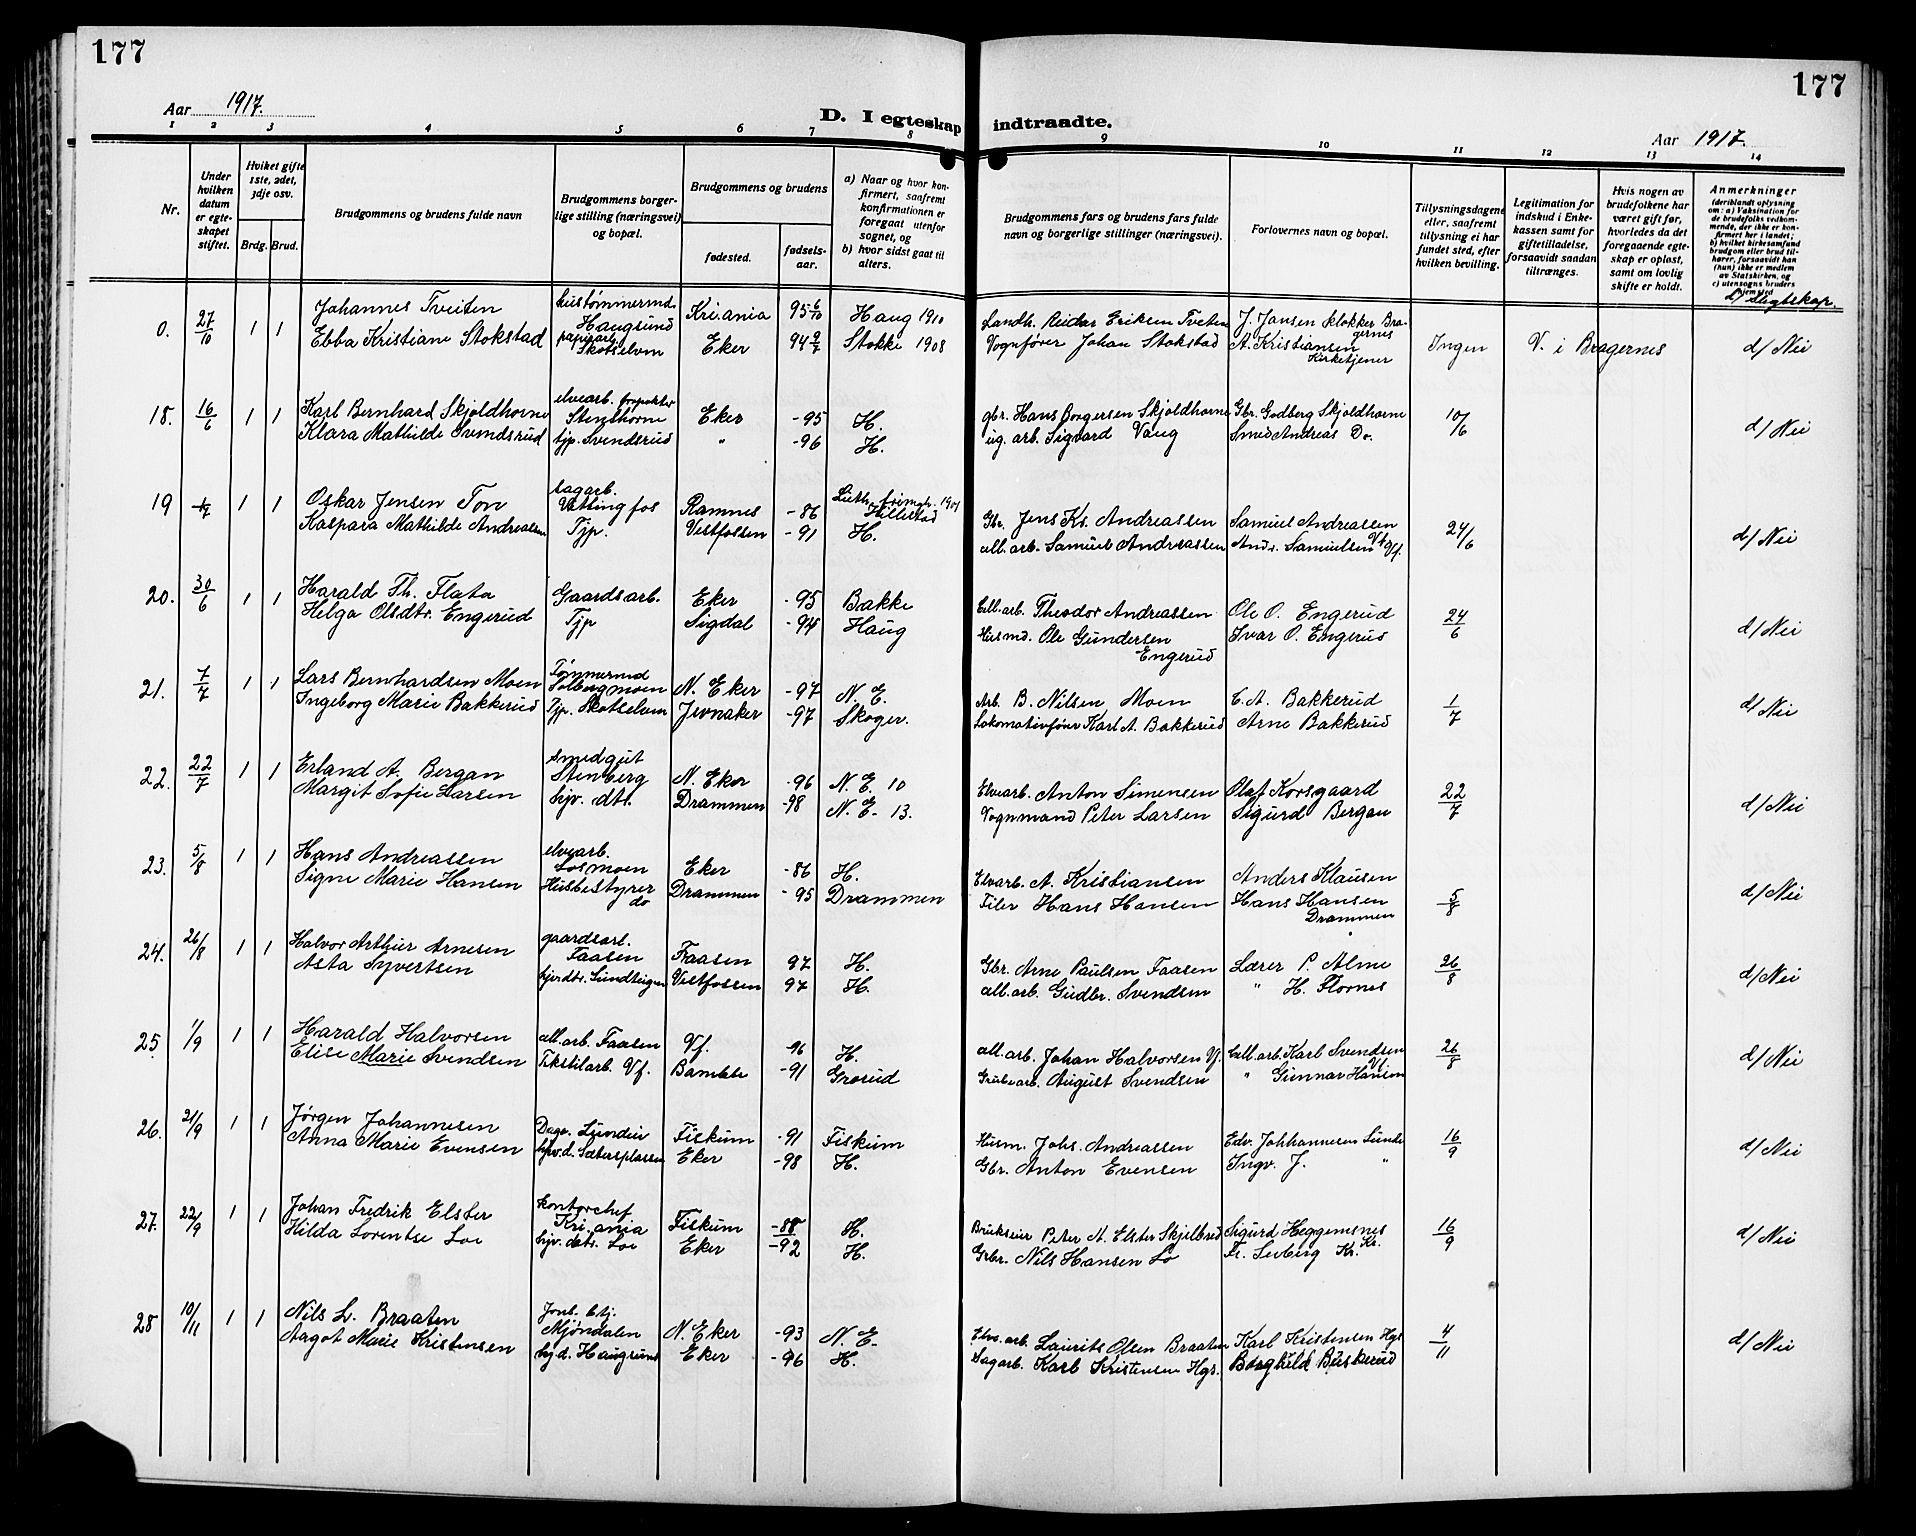 177
177
Aar 1917.
D. I egteskap indtraadte.
Aar 1917.
1 2 3 4 5 6 7 8 9 10 11 12 13 14
Nr.
Under hvilken datum er egteskapet stiftet.
Hvilket gifte 1ste, 2det, 3dje osv.
Brdg. Brud.
Brudgommens og brudens fulde navn
Brudgommens borgerlige stilling (næringsvei) og bopæl.
Brudgommens og brudens
fødested.
fødselsaar.
a) Naar og hvor konfirmert, saafremt konfirmationen er foregaat utenfor sognet, og
b) hvor sidst gaat til alters.
Brudgommens fars og brudens fars fulde navn og borgerlige stillinger (næringsvei).
Forlovernes navn og bopæl.
Tillysningsdagene eller, saafremt tillysning ei har fundet sted, efter hvilken bevilling.
Legitimation for indskud i Enkekassen samt for giftetilladelse, forsaavidt saadan tiltrænges.
Hvis nogen av brudefolkene har været gift før, hvorledes da det foregaaende egteskap er opløst, samt om lovlig skifte er holdt.
Anmerkninger (deriblandt oplysning om: a) Vaksination for de brudefolks vedkommende, der ikke er konfirmert her i landet; b) hvilket kirkesamfund brudgom eller brud tilhører, forsaavidt han (hun) ikke er medlem av Statskirken, og c) utensogns bruders hjemsted
d/ Slegtskap.
0. 27/10 1 1 Johannes Tveiten hustømmermd. Haugsund Kri.ania 95 6/10 Haug 1910 Landh. Reidar Eriksen Tveten J. Jansen klokker Bragernes Ingen V. i Bragernes d/ Nei
Ebba Kristiane Stokstad papirarb. Skotselven Eker 94 2/7 Stokke 1908 Vognfører Johan Stokstad A. Kristiansen Kirketjener
18. 16/6 1 1 Karl Bernhard Skjoldhorne elvearb. Stensthorne Eker -95 H. gbr. Hans Borgersen Skjoldhorne Gbr. Godberg Skjoldhorne 10/6 d/ Nei
Klara Mathilde Svendsrud tjp. Svendsrud " -96 H. ug. arb. Sigvard Vaug Smed Andreas Do.
19 1/7 1 1 Oskar Jensen Tow sagarb. Vittingfos Ramnes -86 Luth. frimgh. 1901 Hillestad Gbr. Jens Kr. Andreassen Samuel Andreassen 24/6 d/ Nei
Kaspara Mathilde Andreassen Tjp. Vestfossen -91 H. all. arb. Samuel Andreassen Andr. Samuelsen Vf.
20. 30/6 1 1 Harald Th. Flata Gaardsarb. Eker -95 Bakke all.arb. Theodor Andreassen Ole O. Engerud 24/6 d/ Nei
Helga Olsdtr. Engerud Tjp Sigdal -94 Haug Husmd. Ole Gundersen Engerud Ivar O. Engerud
21. 7/7 1 1 Lars Bernhardsen Moen Tømmermd Solbergmoen N. Eker -97 N. E. Arb. B. Nilsen Moen C. A. Bakkerud 1/7 d/ Nei
Ingeborg Marie Bakkerud Tjp. Skotselven Jevnaker -97 Skoger. Lokomativfører Karl A. Bakkerud Arne Bakkerud
22. 22/7 1 1 Erland A. Bergan smedgut Stenberg N. Eker -96 N. E. 10 Elvearb. Anton Simensen Olaf Korsgaard 22/7 d/ Nei
Margit Sofie Larsen hjv. dtr. Drammen -98 N. E. 13. Vognmand Peter Larsen Sigurd Bergan
23. 5/8 1 1 Hans Andreassen elvearb. Losmoen Eker -86 H. Elvarb. A. Kristiansen Anders Klausen 5/8 d/ Nei
Signe Marie Hansen Husbestyrer do Drammen -95 Drammen Filer Hans Hansen Hans Hansen Drammen
24. 26/8 1 1 Halvor Arthur Arnesen gaardsarb. Faasen Faasen 97 H. Gbr. Arne Paulsen Faasen Lærer P. Alme 26/8 d/ Nei
Asta Syvertsen hjv.dtr. Sundhaugen Vestfossen 97 H. all. arb. Gudbr. Svendsen " H. Flornes
25. 1/9 1 1 Harald Halvorsen all. arb. Faasen Vf. -96 H. all. arb. Johan Halvorsen Vf. all. arb. Karl Svendsen Vf. 26/8 d/ Nei
Elise Marie Svendsen Tekstilarb. Vf. Bamble -91 Grorud Grubearb. August Svendsen " Gunnar Hansen
26. 21/9 1 1 Jørgen Johannesen Dagv. Lundeie Fiskum -91 Fiskum Husm. Johs. Andreassen Edv. Johhannesen Lunde 16/9 d/ Nei
Anna Marie Evensen hjv.d. Sætersplassen Eker -98 H. Gbr. Anton Evensen Ingv. J. "
27. 22/9 1 1 Johan Fredrik Elster kontorchef Kri.ania Fiskum -88 H. Brukseier Peter A. Elster Skjelbred Sigurd Heggemsnes 16/9 d/ Nei
Hilda Lorentse Loe hjv. datr. Loe Eker -92 H. Gbr. Nils Hansen Lo Fr. Seeberg Kr. Kr.
28 10/11 1 1 Nils L. Braaten Jonb. btj. Mjøndalen N. Eker -93 N. E. Elve. arb. Laurits Olsen Braaten Karl Kristensen Hgs 4/11 d/ Nei
Aagot Marie Kristensen hjd. Haugsund Eker -96 H. Sagarb. Karl Kristensen Hgs. Borghild Buskerud